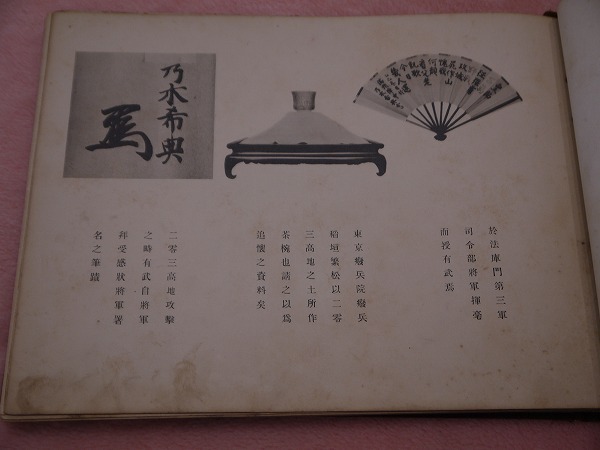 乃木希典
於法庫門第三軍
司令部將軍揮毫
而授有武焉
東京癈兵院癈兵
稻垣繁松以二零
三高地之土所作
茶椀也請之以爲
追懷之資料矣
二零三高地攻擊
之時有武自將軍
拜受感狀將軍署
名之筆蹟